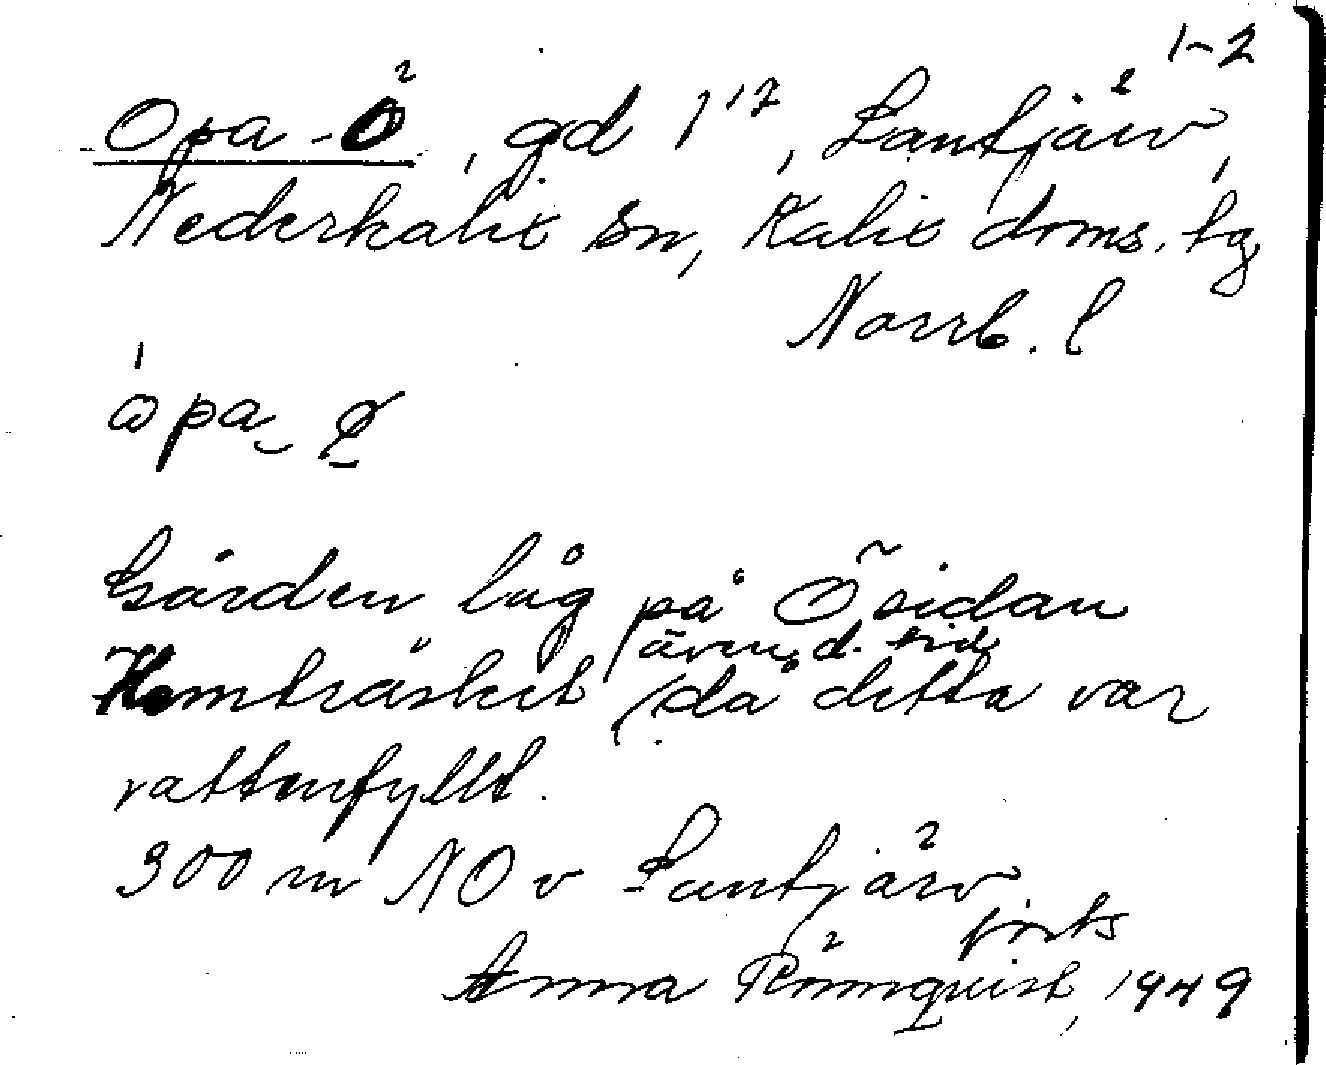 1-2
Opa-Ö, gd 1¹⁷, Lantjärv,
Nederkalix sn, Kalix doms. tg
Norrb. l
ò́pa ö
Gården låg på Ösidan
även d.
Hemträsket (då detta var
vattenfyllt.
300 m NO v Lantjärv
forts
Anna Rönnquist, 1949